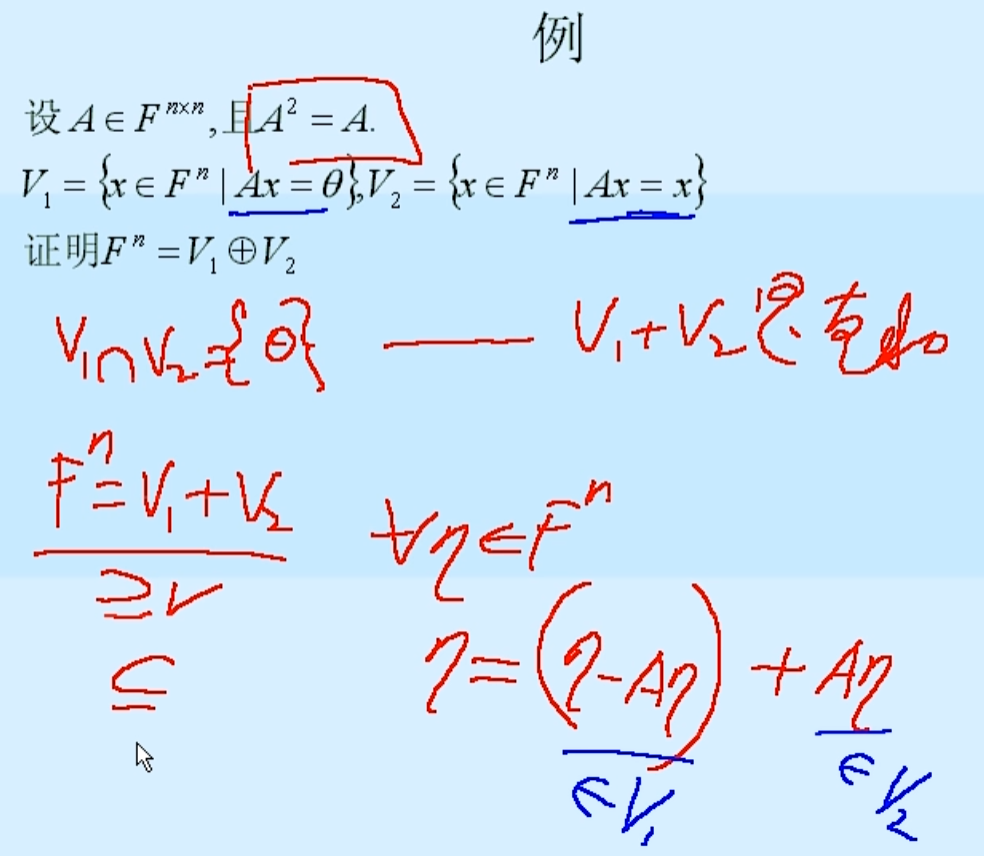 例
设 A ∈ F^{n×n}, 且 A² = A.
V₁ = {x ∈ Fⁿ | Ax = θ}, V₂ = {x ∈ Fⁿ | Ax = x}
证明 Fⁿ = V₁ ⊕ V₂
V₁ ∩ V₂ = {θ} —— V₁ + V₂ 是直和
Fⁿ = V₁ + V₂
∀η ∈ Fⁿ
⊇ ✓
⊆
η = (η - Aη) + Aη
∈ V₁
∈ V₂